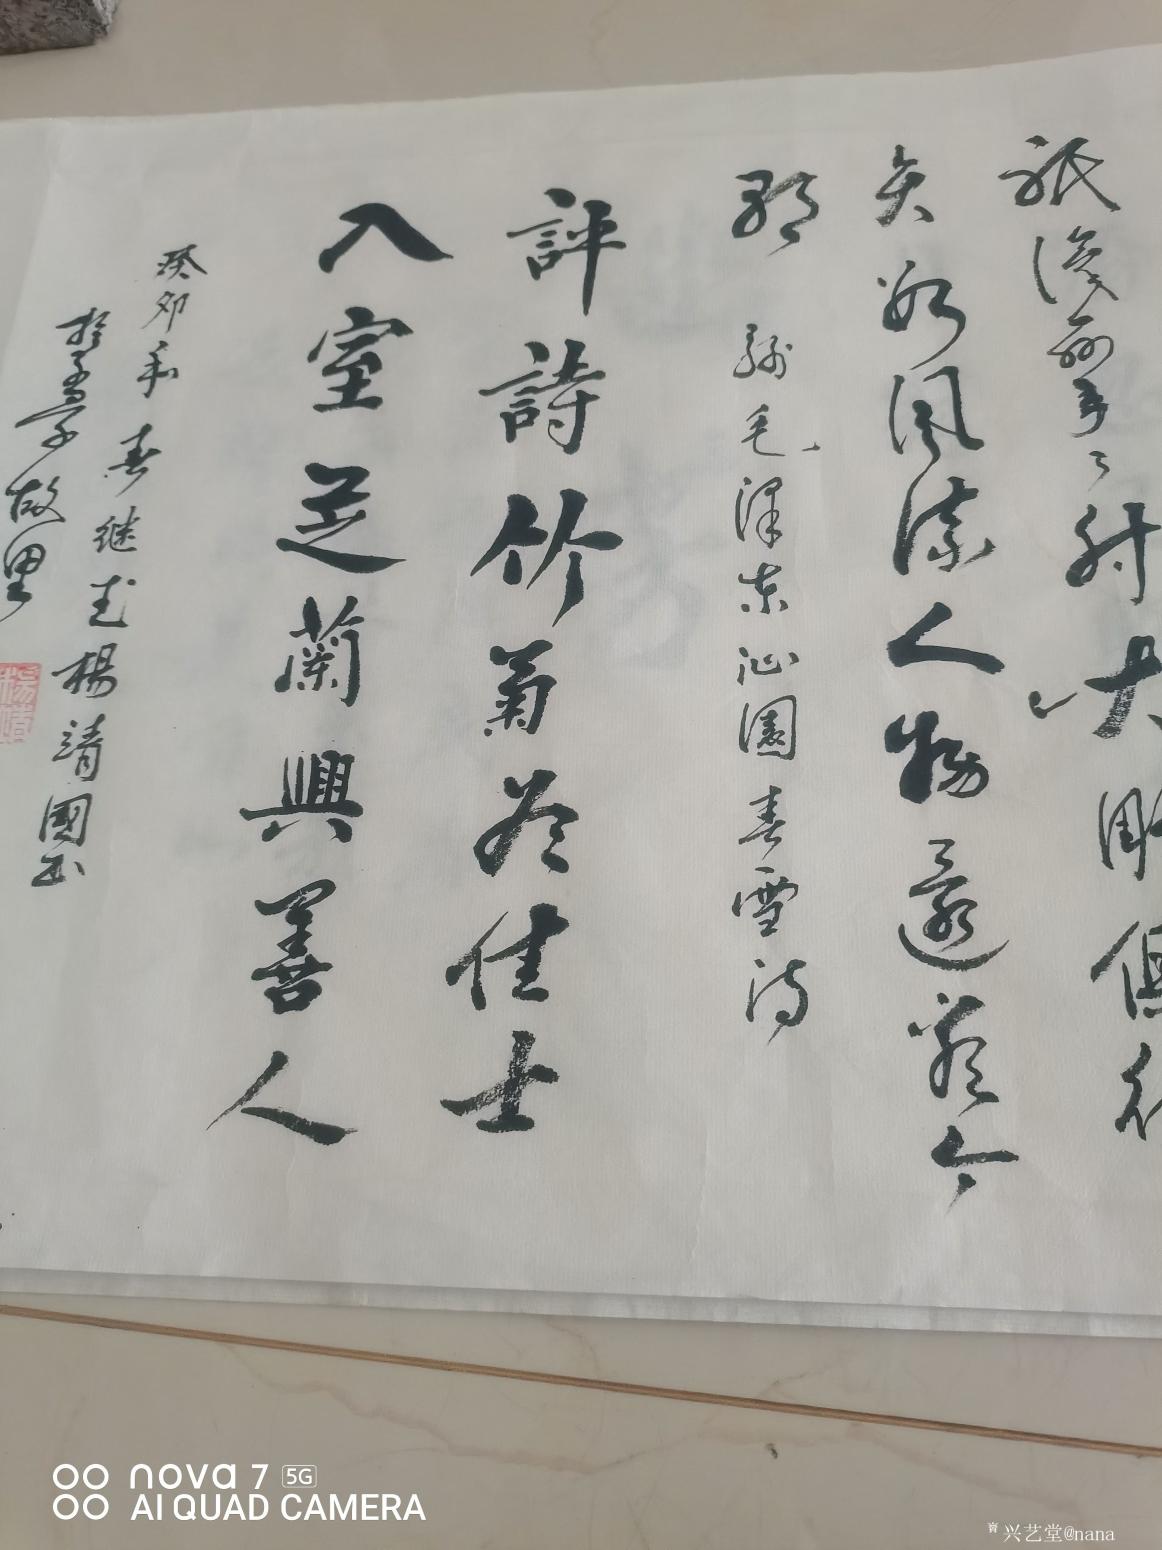 祇識彎弓射大雕俱往
矣數風流人物還看今
朝 錄毛澤東沁園春雪詩
評詩竹菊若佳士
入室芝蘭興善人
癸卯和春继武楊靖國书
於孟子故里
nova 7 5G
AI QUAD CAMERA
兴艺堂@nana